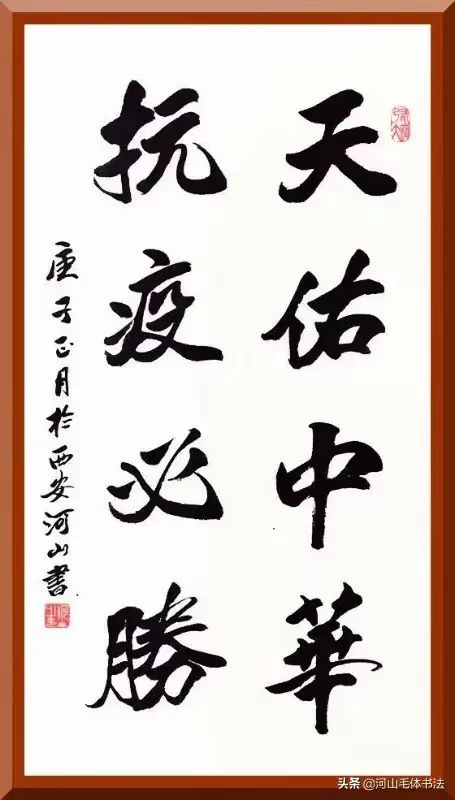 天佑中華
抗疫必勝
庚子正月於西安河山書
头条@河山毛体书法